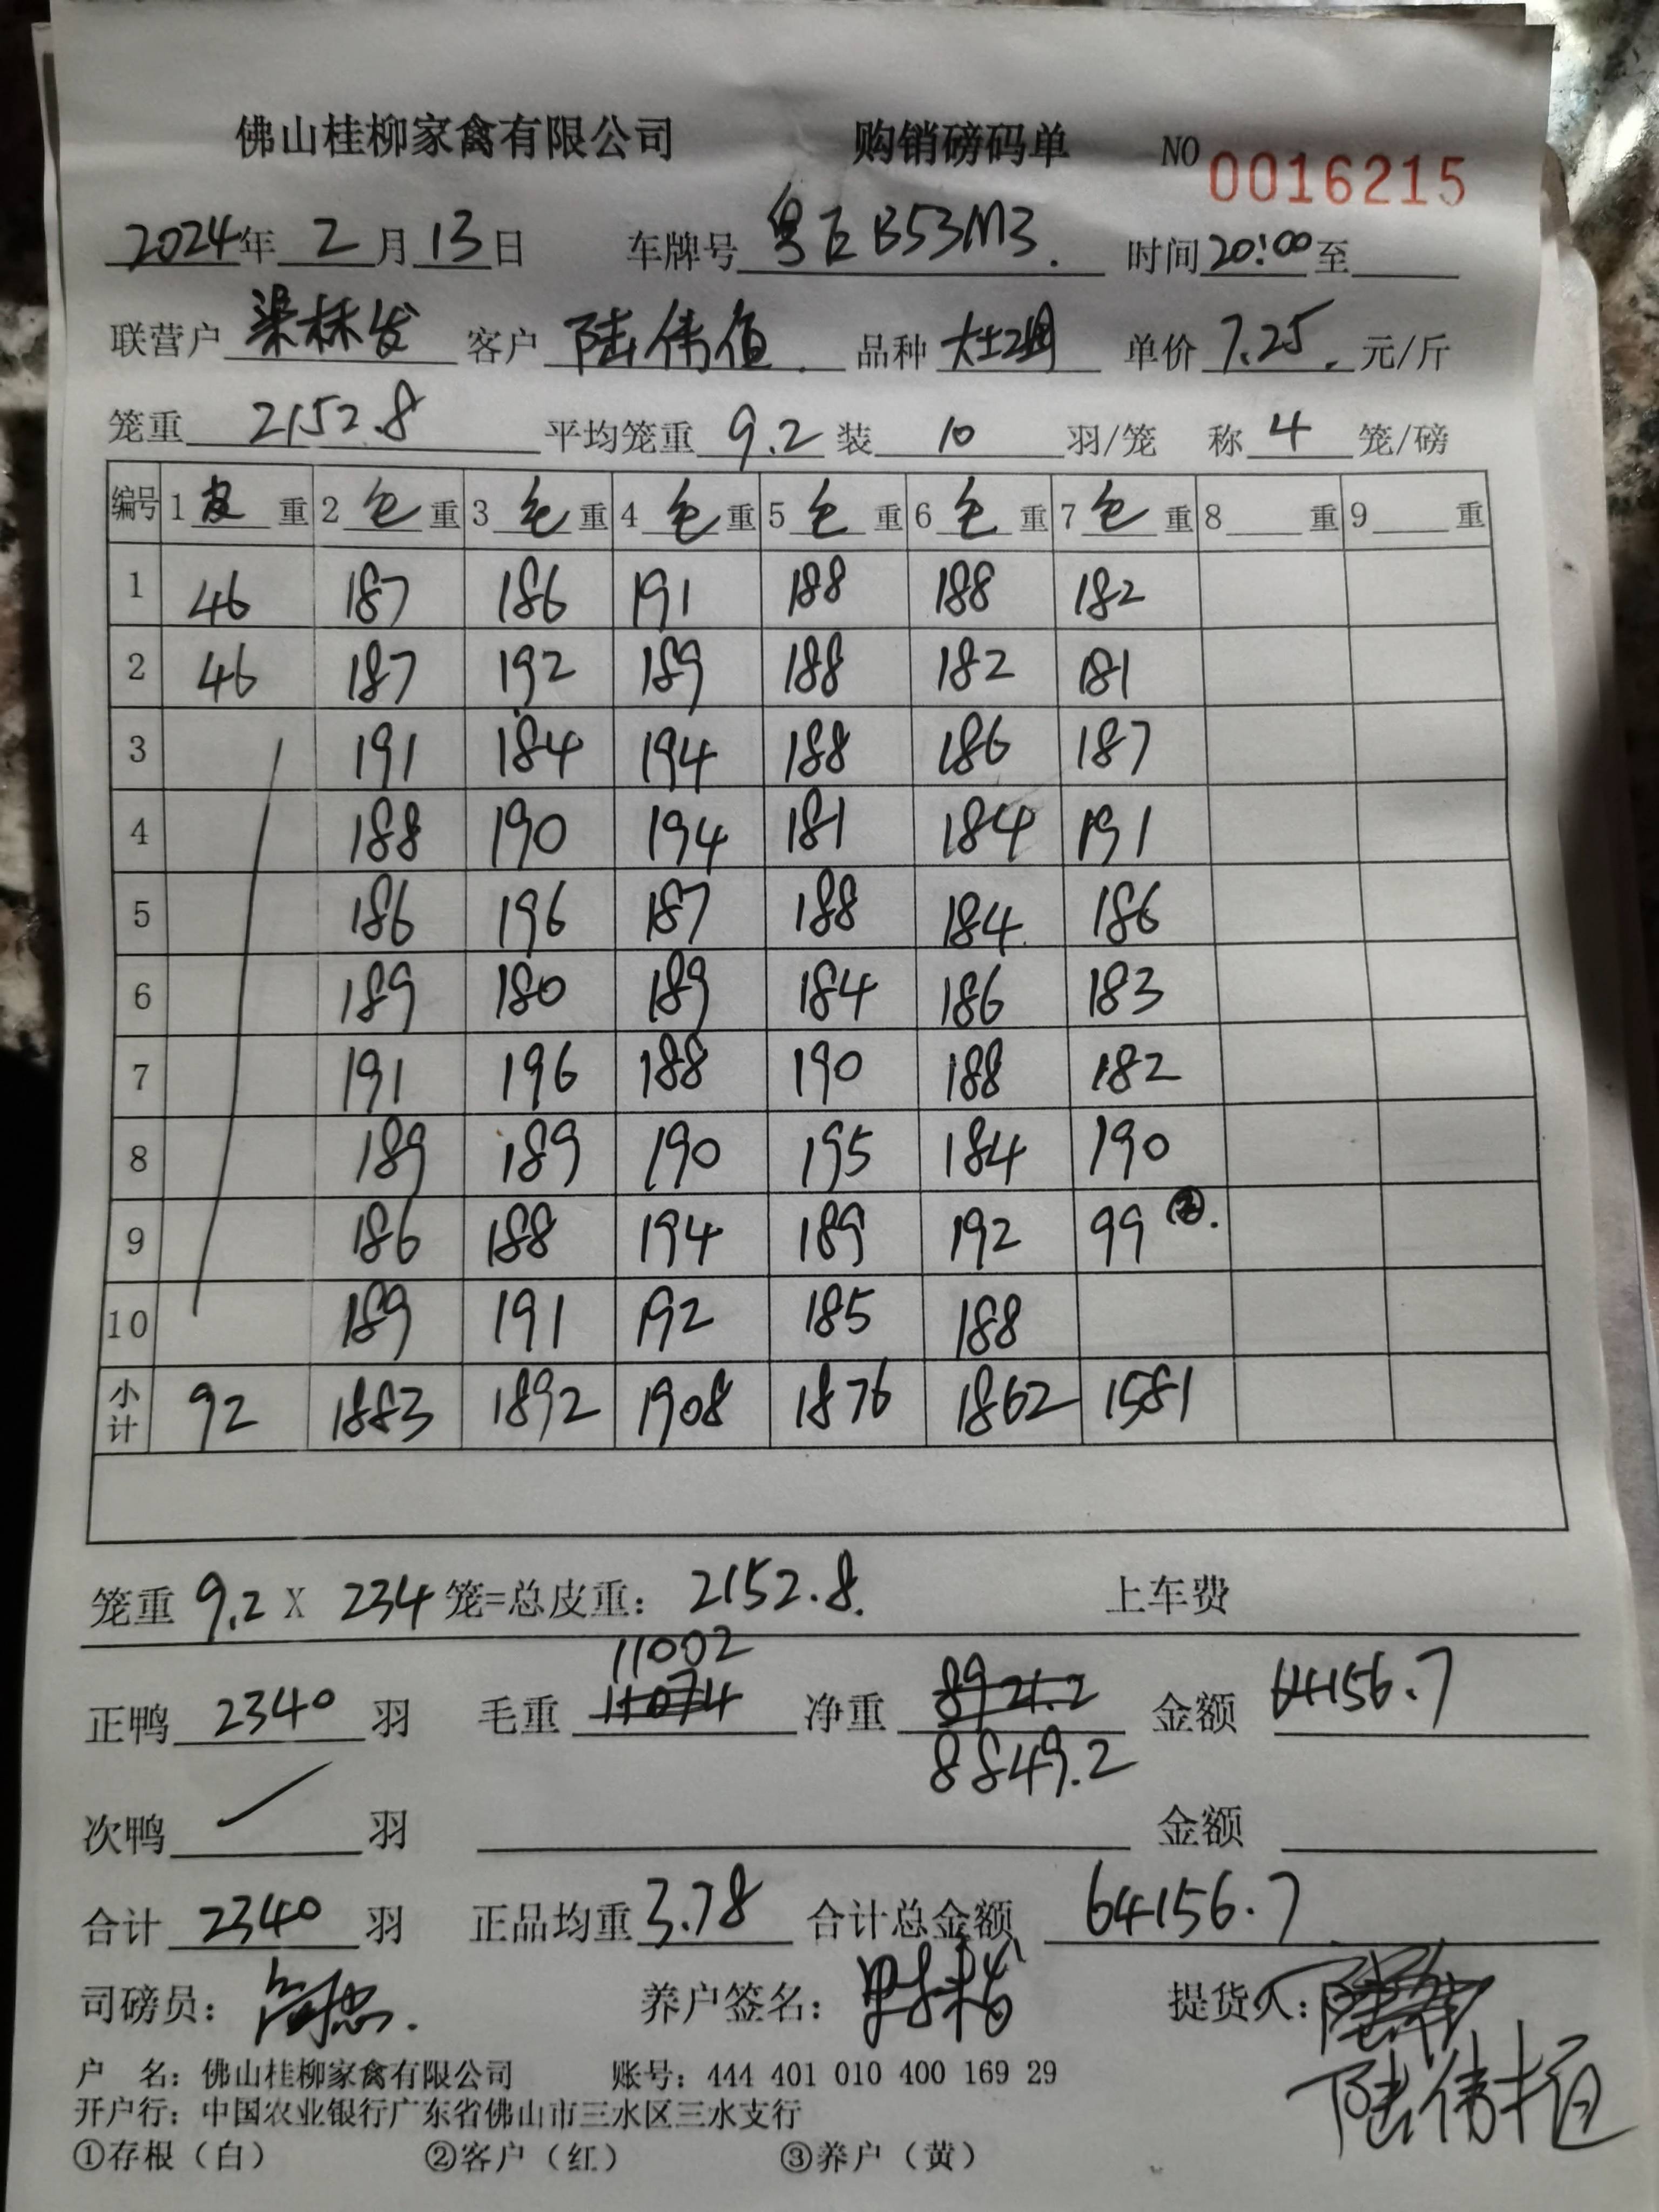 佛山桂柳家禽有限公司 购销磅码单 NO 0016215
2024年 2月 13日 车牌号 粤 B53M3. 时间 20:00 至
联营户 梁林发 客户 陆伟值 品种 单价 7.25. 元/斤
笼重 2152.8 平均笼重 9.2 装 10 羽/笼 称 4 笼/磅
编号 1 皮 重 2 毛 重 3 毛 重 4 毛 重 5 毛 重 6 毛 重 7 毛 重 8 重 9 重
1 46 187 186 191 188 188 182
2 46 187 192 189 188 182 181
3 191 184 194 188 186 187
4 188 190 194 181 184 191
5 186 196 187 188 184 186
6 189 180 189 184 186 183
7 191 196 188 190 188 182
8 189 189 190 195 184 190
9 186 188 194 189 192 99 ②.
10 189 191 192 185 188
小计 92 1883 1892 1908 1876 1862 1581
笼重 9.2 X 234 笼=总皮重: 2152.8. 上车费
11002
正鸭 2340 羽 毛重 11074 净重 8921.2 金额 64156.7
8849.2
次鸭 羽 金额
合计 2340 羽 正品均重 3.78 合计总金额 64156.7
司磅员: 养户签名: 提货人:
陆伟恒
户 名: 佛山桂柳家禽有限公司 账号: 444 401 010 400 169 29
开户行: 中国农业银行广东省佛山市三水区三水支行
①存根（白） ②客户（红） ③养户（黄）